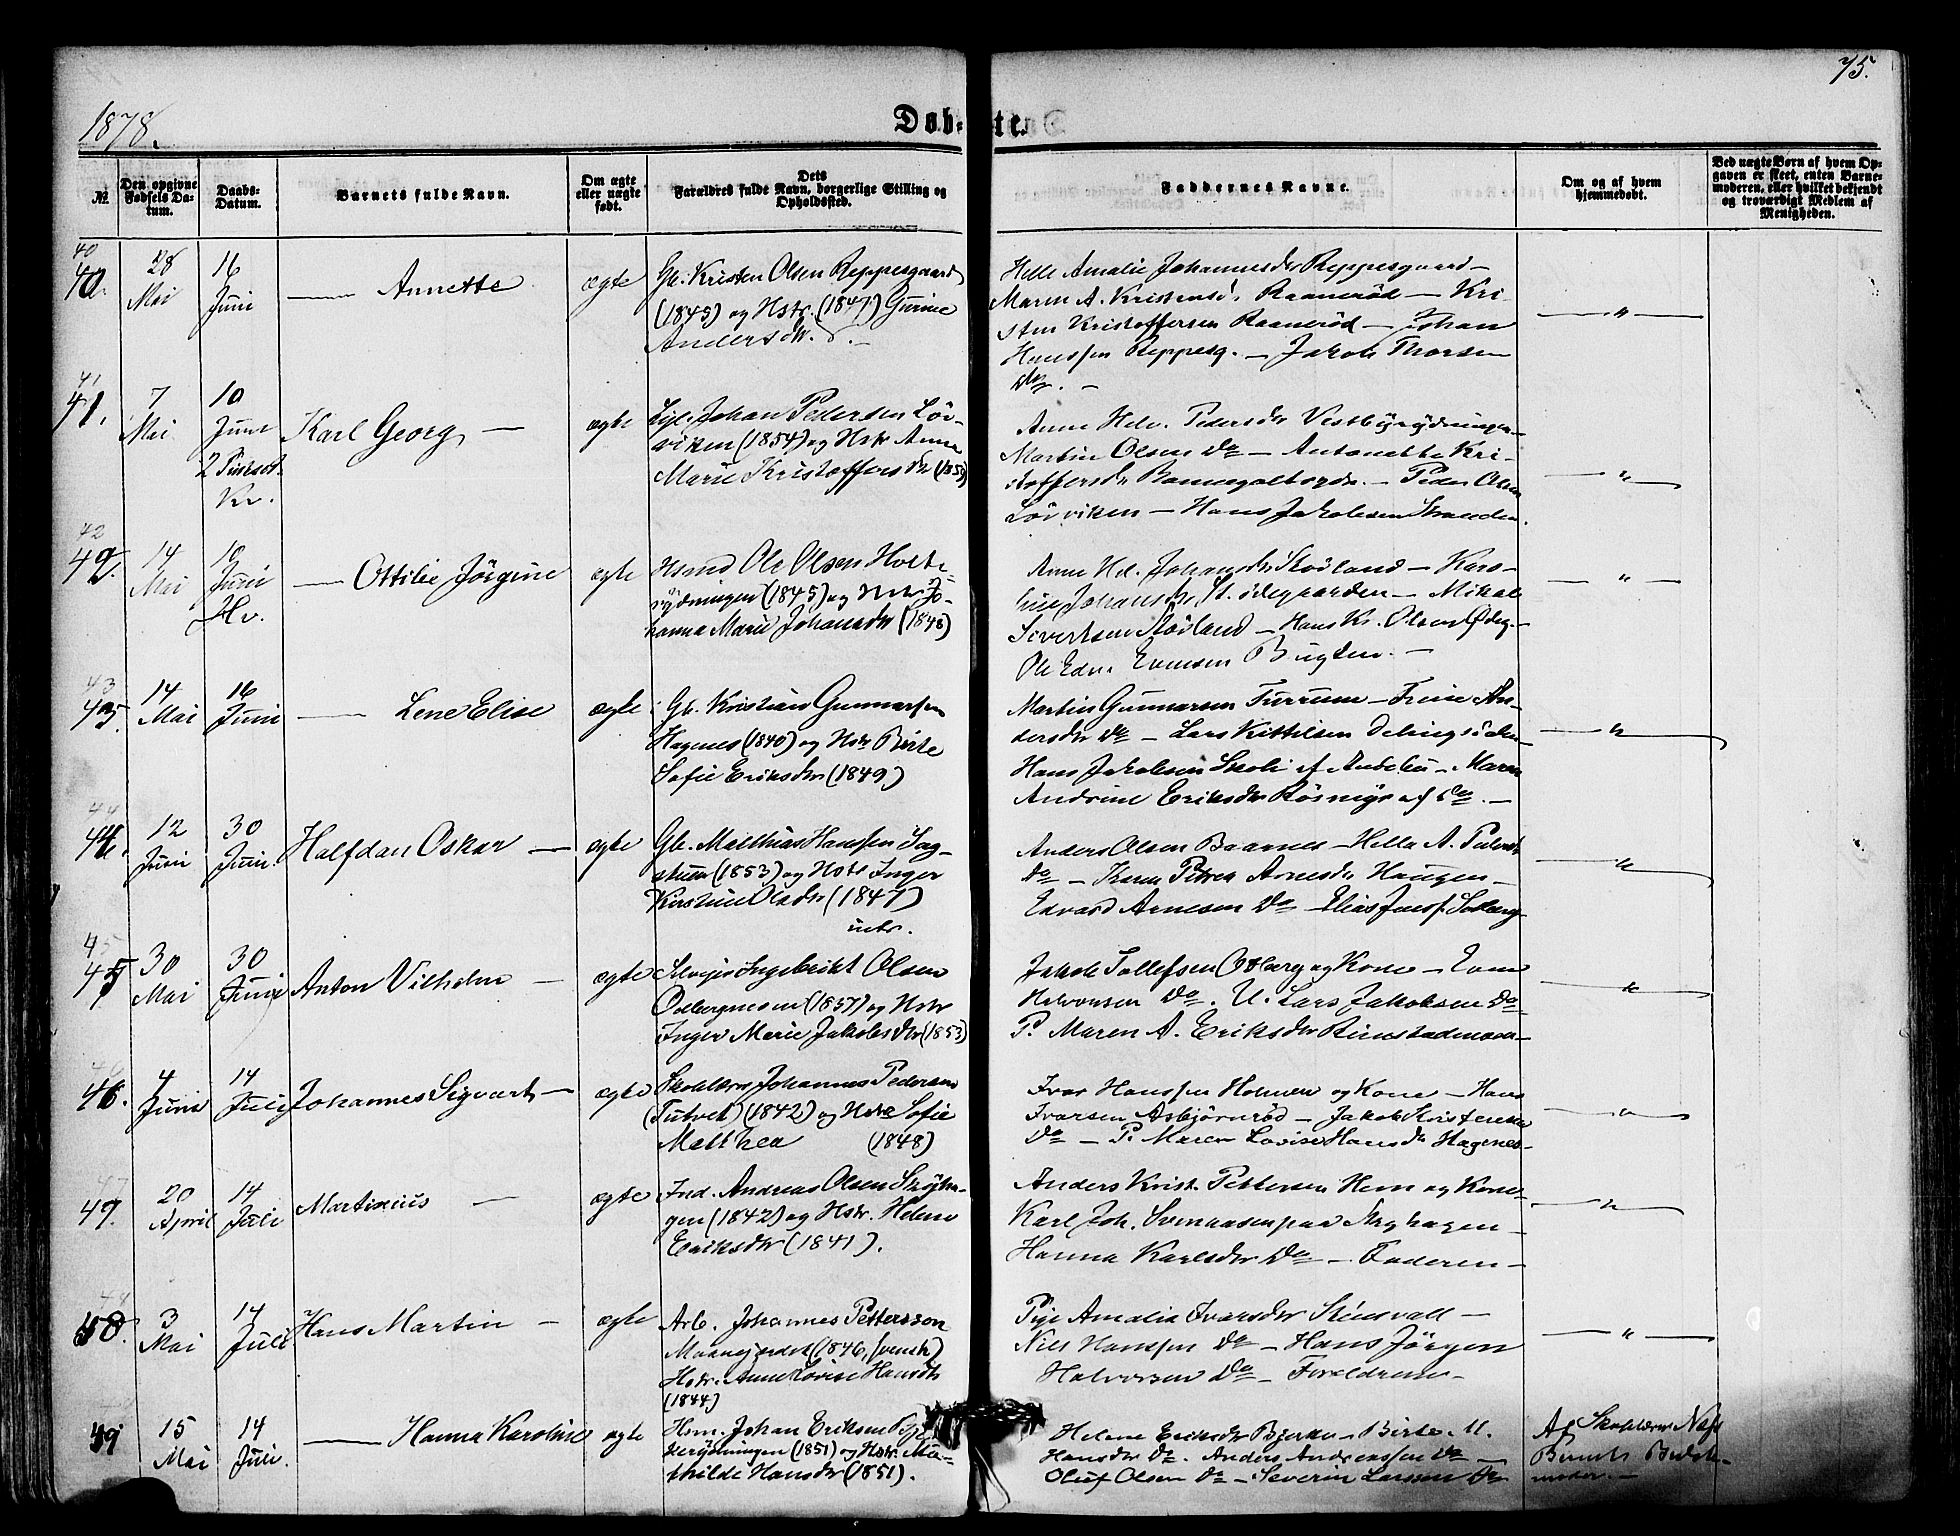 75.
1878.
Døbte.
№
Den opgivne Fødsels Datum.
Daabs-Datum.
Barnets fulde Navn.
Om ægte eller uægte født.
Dets Forældres fulde Navn, borgerlige Stilling og Opholdssted.
Faddernes Navne.
Om og af hvem hjemmedøbt.
Ved uægte Børn af hvem Opgaven er skeet, enten Barnemoderen, eller hvilket bekjendt og troværdigt Medlem af Menigheden.
40
40.
28 Mai
16 Juni
— Annette
ægte
Gb. Kristen Olsen Reppesgaard
(1845) og Hstr. (1847) Gurine
Andersdtr. —
Helle Amalie Johannesdtr Reppesgaard —
Maren A. Kristensd. Raanerød — Kri-
sten Kristoffersen Raanerød — Johan
Hanssen Reppesg. — Jakob Thorsen
do. —
— " —
41
41.
7 Mai
10 Juni
2 Pintsed.
Kv.
Karl Georg —
ægte
Johan Pedersen Løv-
viken (1854) og Hstr Anne
Marie Kristoffersdtr
Anne Helv. Pedersdr Vestbyrydningen
Martin Olsen do — Antonette Kri-
stoffersdr — Peder Olsen
Løvviken — Hans Jakobsen Stranden.
— " —
42
42.
14 Mai
10 Juni
Hv.
— Ottilie Jørgine
ægte
Hsmd Ole Olsen Holte-
rydningen (1845) og Hstr Jo-
hanna Marie Johansdtr (1848)
Anne Hel. Johansdr Støiland — Karo-
line Johansdr St. ødegaarden — Mikal
Sivertsen Støiland — Hans Kr. Olsen Ødeg. —
Ole Edv. Evensen Bugten. —
— " —
43
43.
14 Mai
16 Juni
— Lene Elise
ægte
Gb. Kristian Gunnarsen
Hagenes (1840) og Hstr Birte
Sofie Eriksdtr (1849)
Martin Gunnarsen Furrum — Trine An-
dersdtr do — Lars Kittilsen
Hans Jakobsen Skoli af Andebu — Maren
Andrine Eriksdtr Røsmyr af do. —
— " —
44
44.
12 Juni
30 Juni.
Halfdan Oskar —
ægte
Gb. Matthias Hanssen Sag-
stuen (1853) og Hstr Inger
Kirstine Olsdtr (1847)
intr.
Anders Olsen Baanes — Helle A. Pedersdr
do — Karen Petrea Arnesdr Haugen —
Edvard Arnesen do — Elias Jonss. Solberg
— " —
45
45
30 Mai
30 Juni
Anton Vilhelm —
ægte
Selvejer Ingebrikt Olsen
Odbergnesen (1857) og Hstr
Inger Marie Jakobsdtr (1853)
Jakob Tollefsen Odberg og Kone — Even
Halvorsen do. U. Lars Jakobsen do
P. Maren A. Eriksdtr
— " —
46
46.
4 Juni
14 Juli
Johannes Sigvart —
ægte
Skolelærer Johannes Pedersen
Tutvet (1842) og Hstr Sofie
Matthea (1848)
Ivar Hanssen Holmen og Kone — Hans
Ivarsen Asbjørnrød — Jakob Kristensen
do — P. Maren Lovise Hansdr Hagenes —
— " —
47
47.
20 April
14 Juli
Martinius —
ægte
Ind. Andreas Olsen
gen (1842) og Hstr. Helene
Eriksdtr (1841).
Anders Krist. Pettersen Hem og Kone —
Karl Joh. Svensasen paa Myhagen —
Hanna Karlsdtr do — Faderen —
— " —
48
48.
3 Mai
14 Juli
Hans Martin —
ægte
Arb. Johannes Pettersson
(1846, svensk)
Hstr. Anne Lovise Hansdtr
(1844)
Pige Amalia Ivarsdtr Stensvall —
Nils Hanssen do — Hans Jørgen
Halvorsen do — Foreldrene —
— " —
49
15 Mai
14 Juli.
— Hanna Karoline
ægte
Hsm. Johan Eriksen
rydningen (1851) og Hstr. Ma-
thilde Hansdtr (1851).
Helene Eriksdtr Bjerke — Birte M.
Hansdtr do. Anders Andreassen do —
Oluf Olsen do — Severin Larssen do
Af Skolelærer Næss